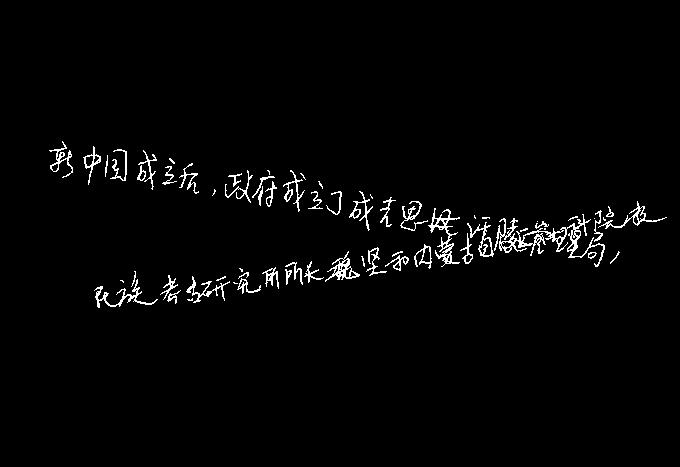 新中国成立后,政府成立了成吉思汗陵管理局,
民族考古研究所所长魏坚和内蒙古科院